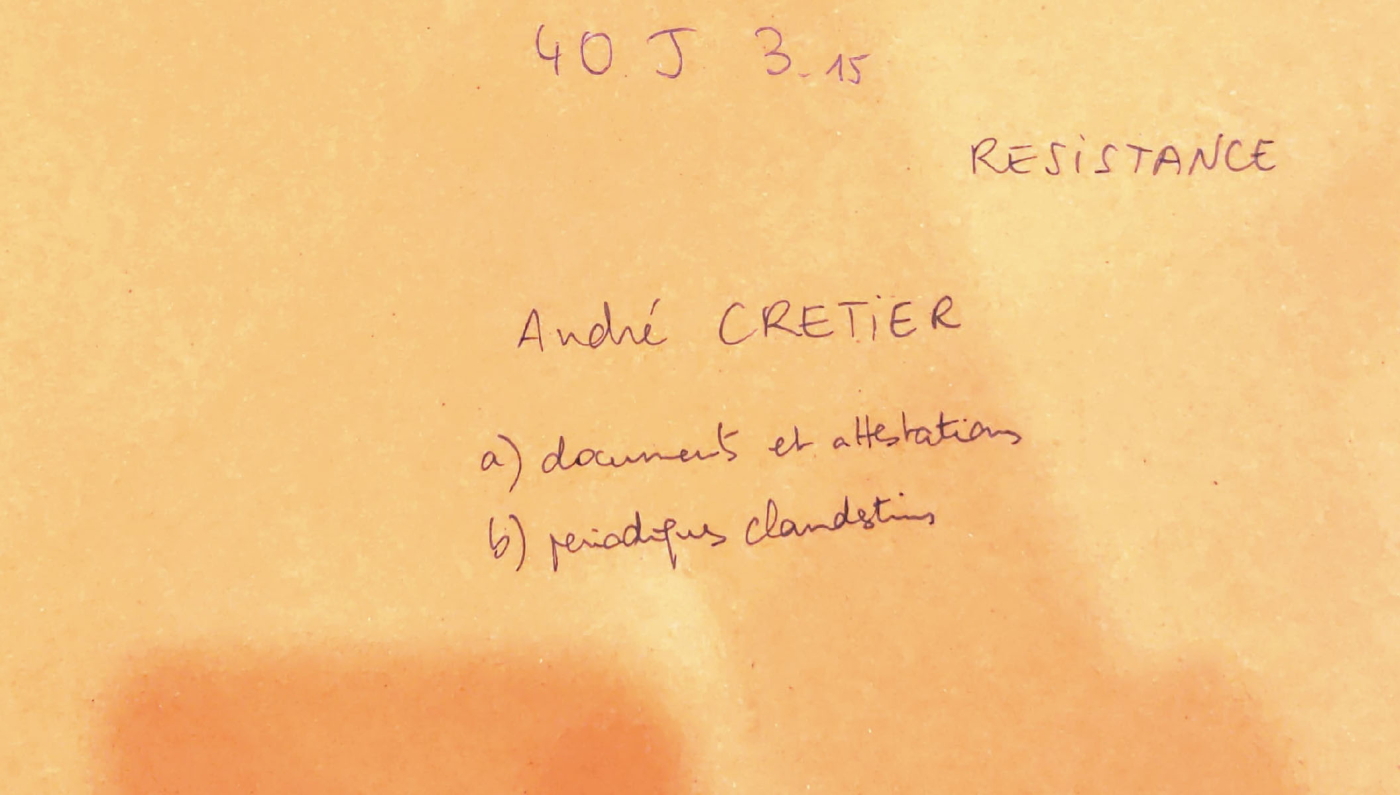 40 J 3-15
RESISTANCE
André CRETIER
a) documents et attestations
b) periodiques clandestins